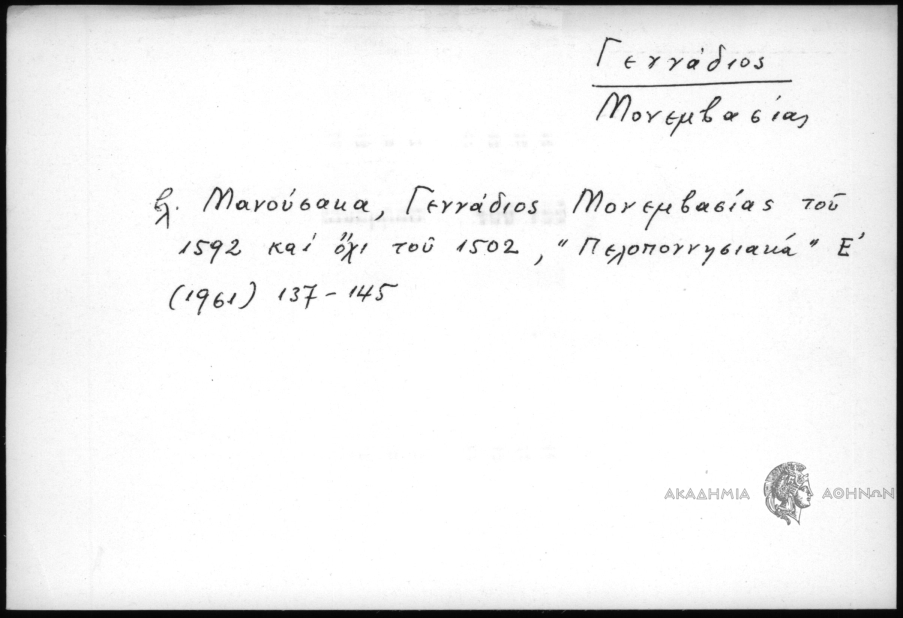 Γεννάδιος
Μονεμβασίας
βλ. Μανούσακα, Γεννάδιος Μονεμβασίας τοῦ
1592 καί ὄχι τοῦ 1502, "Πελοποννησιακά" Ε'
(1961) 137-145
ΑΚΑΔΗΜΙΑ ΑΘΗΝΩΝ